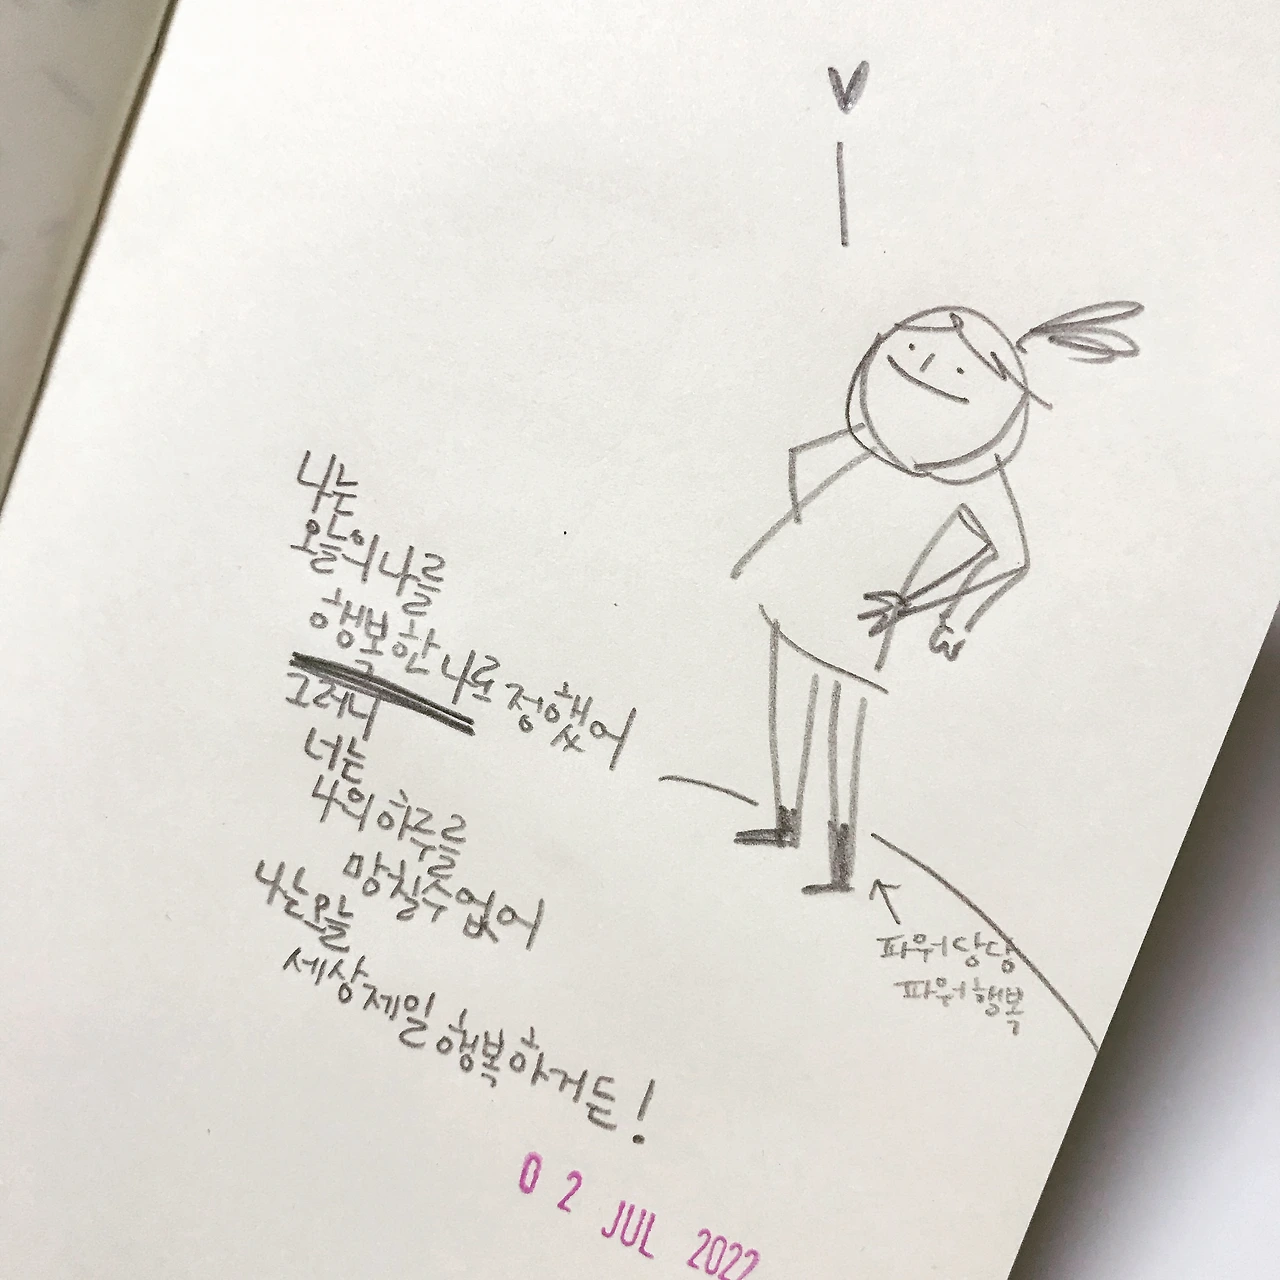 나는
오늘의 나를
행복한 나로 정했어
그러니
너는
나의 하루를
망칠 수 없어
나는 오늘
세상 제일 행복하거든!
파워당당
파워행복
02 JUL 2022